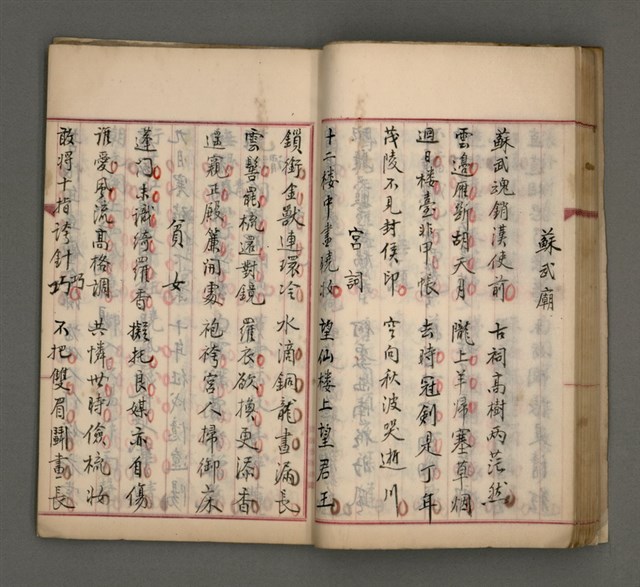 蘇武廟
蘇武魂銷漢使前 古祠高樹兩茫然
雲邊雁斷胡天月 隴上羊歸塞草烟
迴日楼臺非甲帳 去時冠劍是丁年
茂陵不見封侯印 空向秋波哭逝川
宮詞
十二楼中盡曉妝 望仙楼上望君王
鎖銜金獸連環冷 水滴銅龍晝漏長
雲髻罷梳還對鏡 羅衣欲換更添香
遥窺正殿簾開處 袍袴宮人掃御床
貧女
蓬門未識綺羅香 擬托良媒亦自傷
谁愛風流高格調 共憐世時儉梳妆
敢將十指誇針巧 不把雙眉鬪畫長